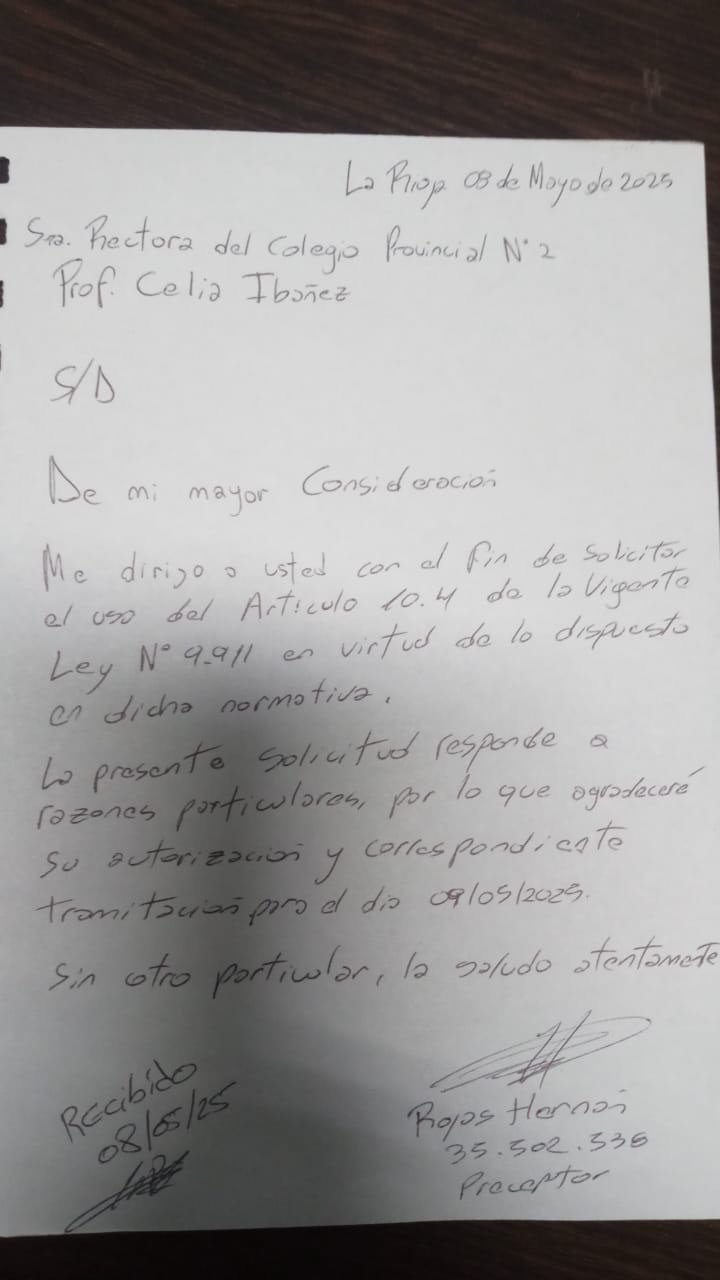 La Rioja 08 de Mayo de 2025
Sra. Rectora del Colegio Provincial N° 2
Prof. Celia Ibañez
S/D
De mi mayor Consideración
Me dirijo a usted con el fin de solicitar
el uso del Artículo 10.4 de la Vigente
Ley N° 9.911 en virtud de lo dispuesto
en dicha normativa.
La presente solicitud responde a
razones particulares, por lo que agradeceré
su autorización y correspondiente
tramitación para el dia 09/05/2025.
Sin otro particular, la saludo atentamente
Recibido
08/05/25
Rojas Hernán
35.502.536
Preceptor